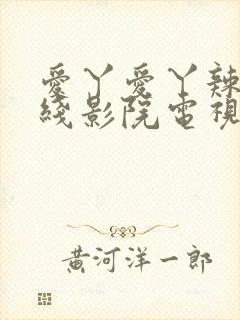 愛丫愛丫辣
綫影院電視
黃河洋一郎